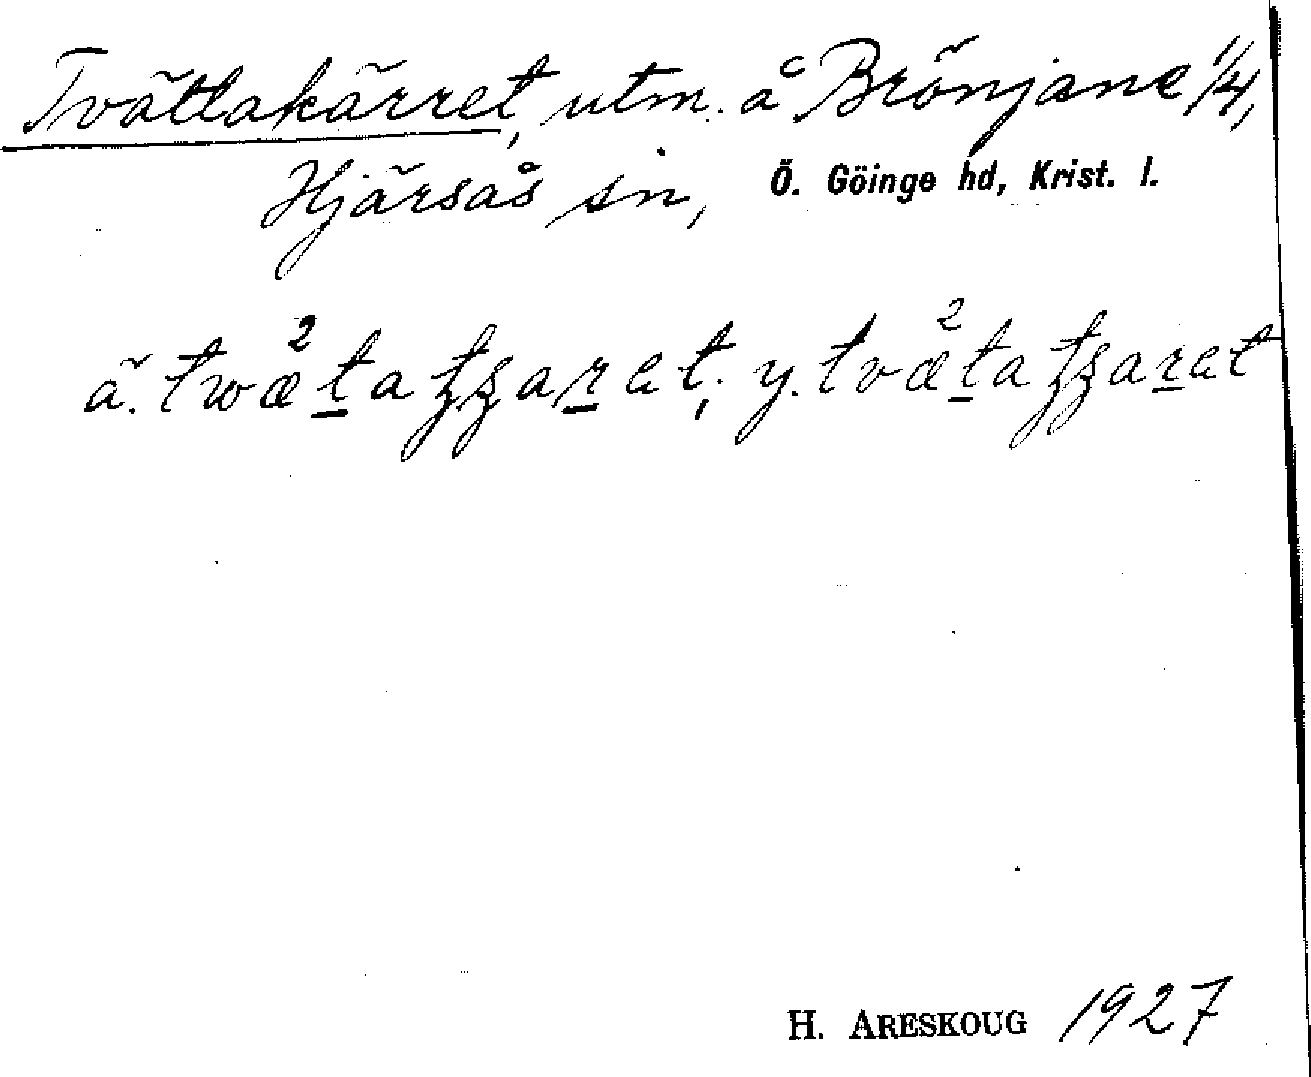 Tvättakärret, utm. å Brönjane 1/4,
Hjärsås sn, Ö. Göinge hd, Krist. l.
ä. ; y.
H. ARESKOUG 1927